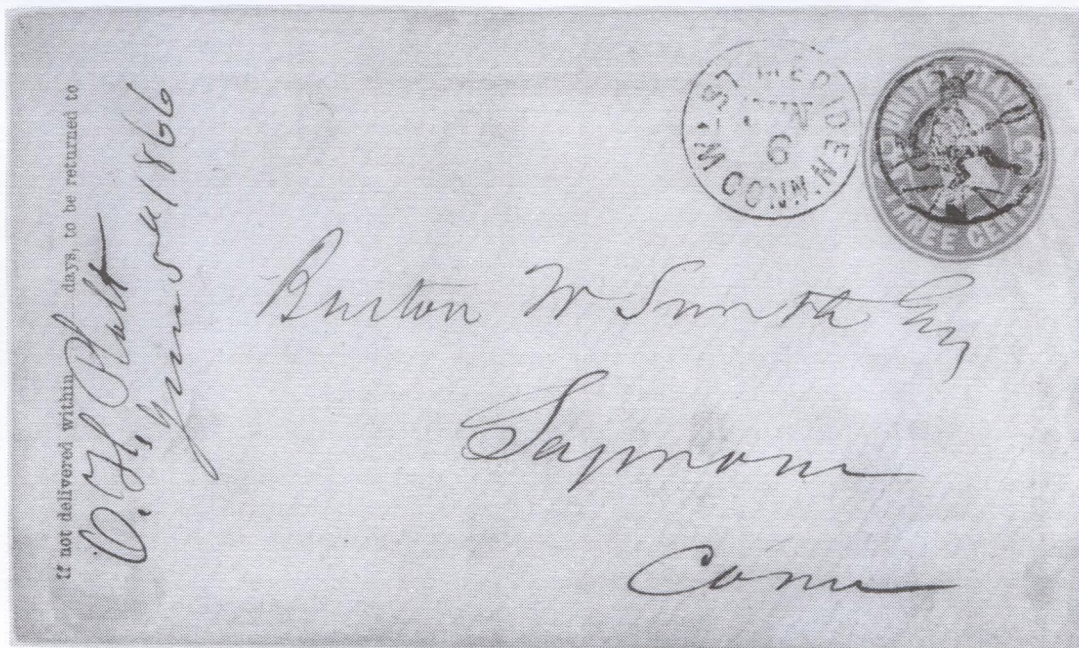 If not delivered within days, to be returned to
O. H. Platt
June 5th 1866
WEST MERIDEN
JUN
6
CONN.
UNITED STATES
THREE CENTS
Burton W Smith Esq
Seymour
Conn